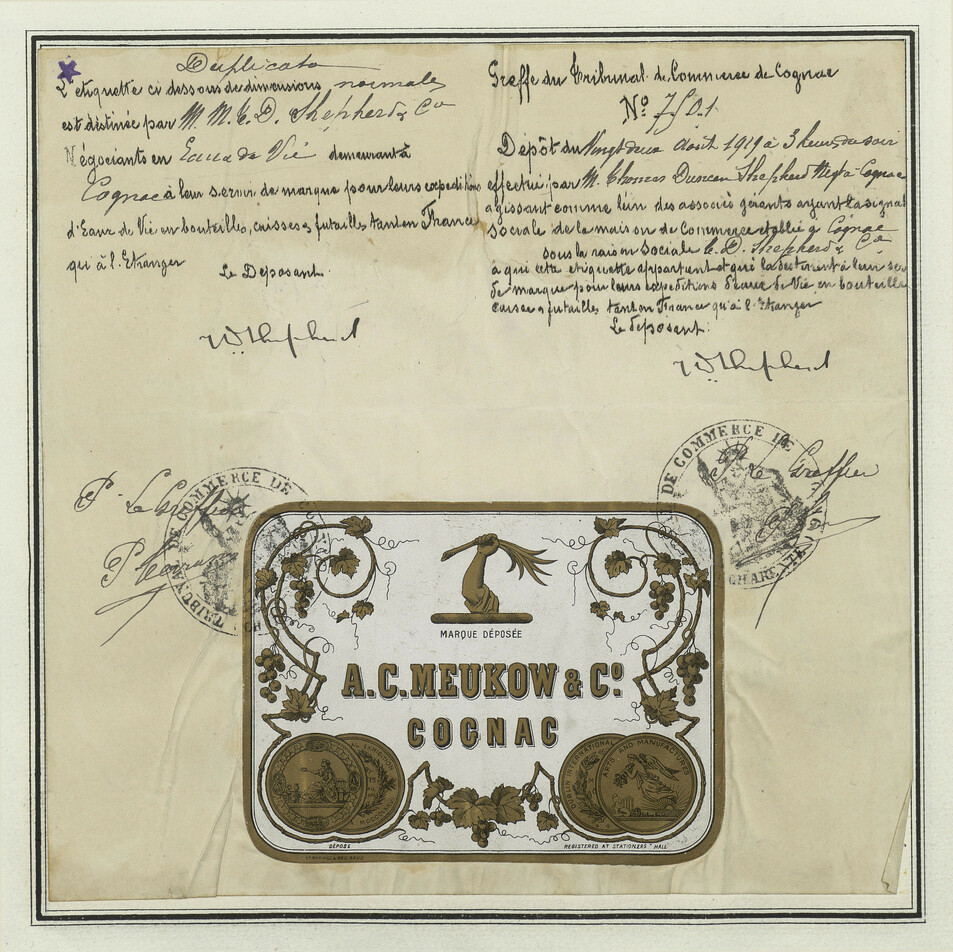 Duplicata
L'etiquette ci dessous de dimensions normales
est destinée par M. M. T. D. Shepherd & Co
Négociants en Eaux de Vie demeurant à
Cognac à leur servir de marque pour leurs expeditions
d'Eaux de Vie en bouteilles, caisses & futailles tant en France
qu'à l'Etranger
Le Deposant
TDShepherd
Greffe du Tribunal de Commerce de Cognac
No 7501
Dépôt du Vingt deux Août 1919 à 3 heures du soir
effectué par M. Thomas Duncan Shepherd Negt à Cognac
agissant comme l'un des associés gérants ayant la signat
sociale de la maison de Commerce établie à Cognac
sous la raison sociale T. D. Shepherd & Co
à qui cette etiquette appartient et qui la destinent à leur ser
de marque pour leurs expeditions d'eaux de Vie en bouteilles
caisses & futailles tant en France qu'à l'Etranger
Le deposant:
TDShepherd
P. Le Greffier
TRIBUNAL DE COMMERCE DE
Pr Le Greffier
DE COMMERCE
CHARENTE
MARQUE DÉPOSÉE
A.C. MEUKOW & Co.
COGNAC
EXHIBITION
DUBLIN INTERNATIONAL
ARTS AND MANUFACTURES
DÉPOSÉ
REGISTERED AT STATIONERS' HALL